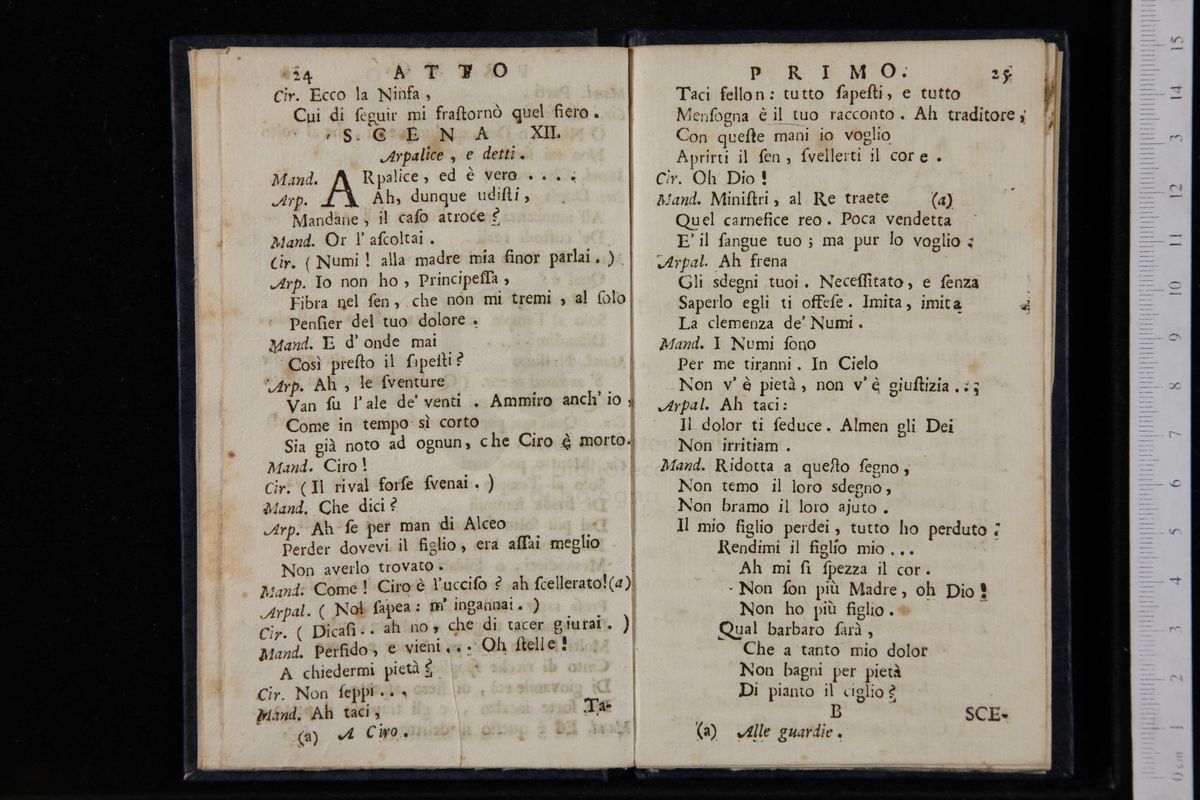 24 ATTO
Cir. Ecco la Ninfa,
Cui di ſeguir mi fraſtornò quel fiero.
SCENA XII.
Arpalice, e detti.
Mand. ARpalice, ed è vero ....
Arp. Ah, dunque udiſti,
Mandane, il caſo atroce?
Mand. Or l'aſcoltai.
Cir. (Numi! alla madre mia finor parlai.)
Arp. Io non ho, Principeſſa,
Fibra nel ſen, che non mi tremi, al ſolo
Penſier del tuo dolore.
Mand. E d'onde mai
Così preſto il ſapeſti?
Arp. Ah, le ſventure
Van ſu l'ale de' venti. Ammiro anch'io,
Come in tempo sì corto
Sia già noto ad ognun, che Ciro è morto.
Mand. Ciro!
Cir. (Il rival forſe ſvenai.)
Mand. Che dici?
Arp. Ah ſe per man di Alceo
Perder dovevi il figlio, era aſſai meglio
Non averlo trovato.
Mand. Come! Ciro è l'ucciſo? ah ſcellerato!(a)
Arpal. (Nol ſapea: m'ingannai.)
Cir. (Dicaſi.. ah no, che di tacer giurai.)
Mand. Perfido, e vieni... Oh ſtelle!
A chiedermi pietà?
Cir. Non ſeppi...
Mand. Ah taci,
Ta-
(a) A Ciro.
PRIMO. 25
Taci fellon: tutto ſapeſti, e tutto
Menſogna è il tuo racconto. Ah traditore;
Con queſte mani io voglio
Aprirti il ſen, ſvellerti il core.
Cir. Oh Dio!
Mand. Miniſtri, al Re traete (a)
Quel carnefice reo. Poca vendetta
E' il ſangue tuo; ma pur lo voglio.
Arpal. Ah frena
Gli sdegni tuoi. Neceſſitato, e ſenza
Saperlo egli ti offeſe. Imita, imita
La clemenza de' Numi.
Mand. I Numi ſono
Per me tiranni. In Cielo
Non v'è pietà, non v'è giuſtizia...
Arpal. Ah taci:
Il dolor ti ſeduce. Almen gli Dei
Non irritiam.
Mand. Ridotta a queſto ſegno,
Non temo il loro sdegno,
Non bramo il loro ajuto.
Il mio figlio perdei, tutto ho perduto:
Rendimi il figlio mio...
Ah mi ſi ſpezza il cor.
Non ſon più Madre, oh Dio!
Non ho più figlio.
Qual barbaro ſarà,
Che a tanto mio dolor
Non bagni per pietà
Di pianto il ciglio?
B SCE-
(a) Alle guardie.